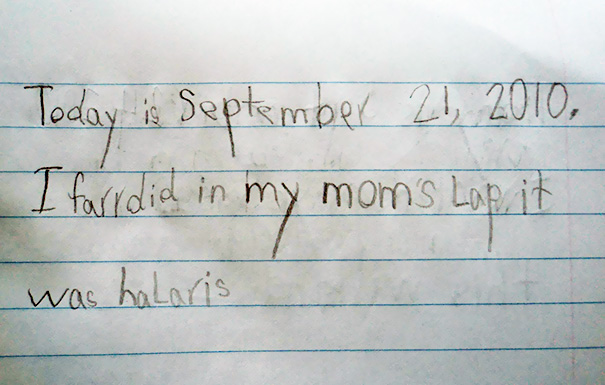 Today is September 21, 2010.
I farrdid in my mom's Lap. it
was haLaris